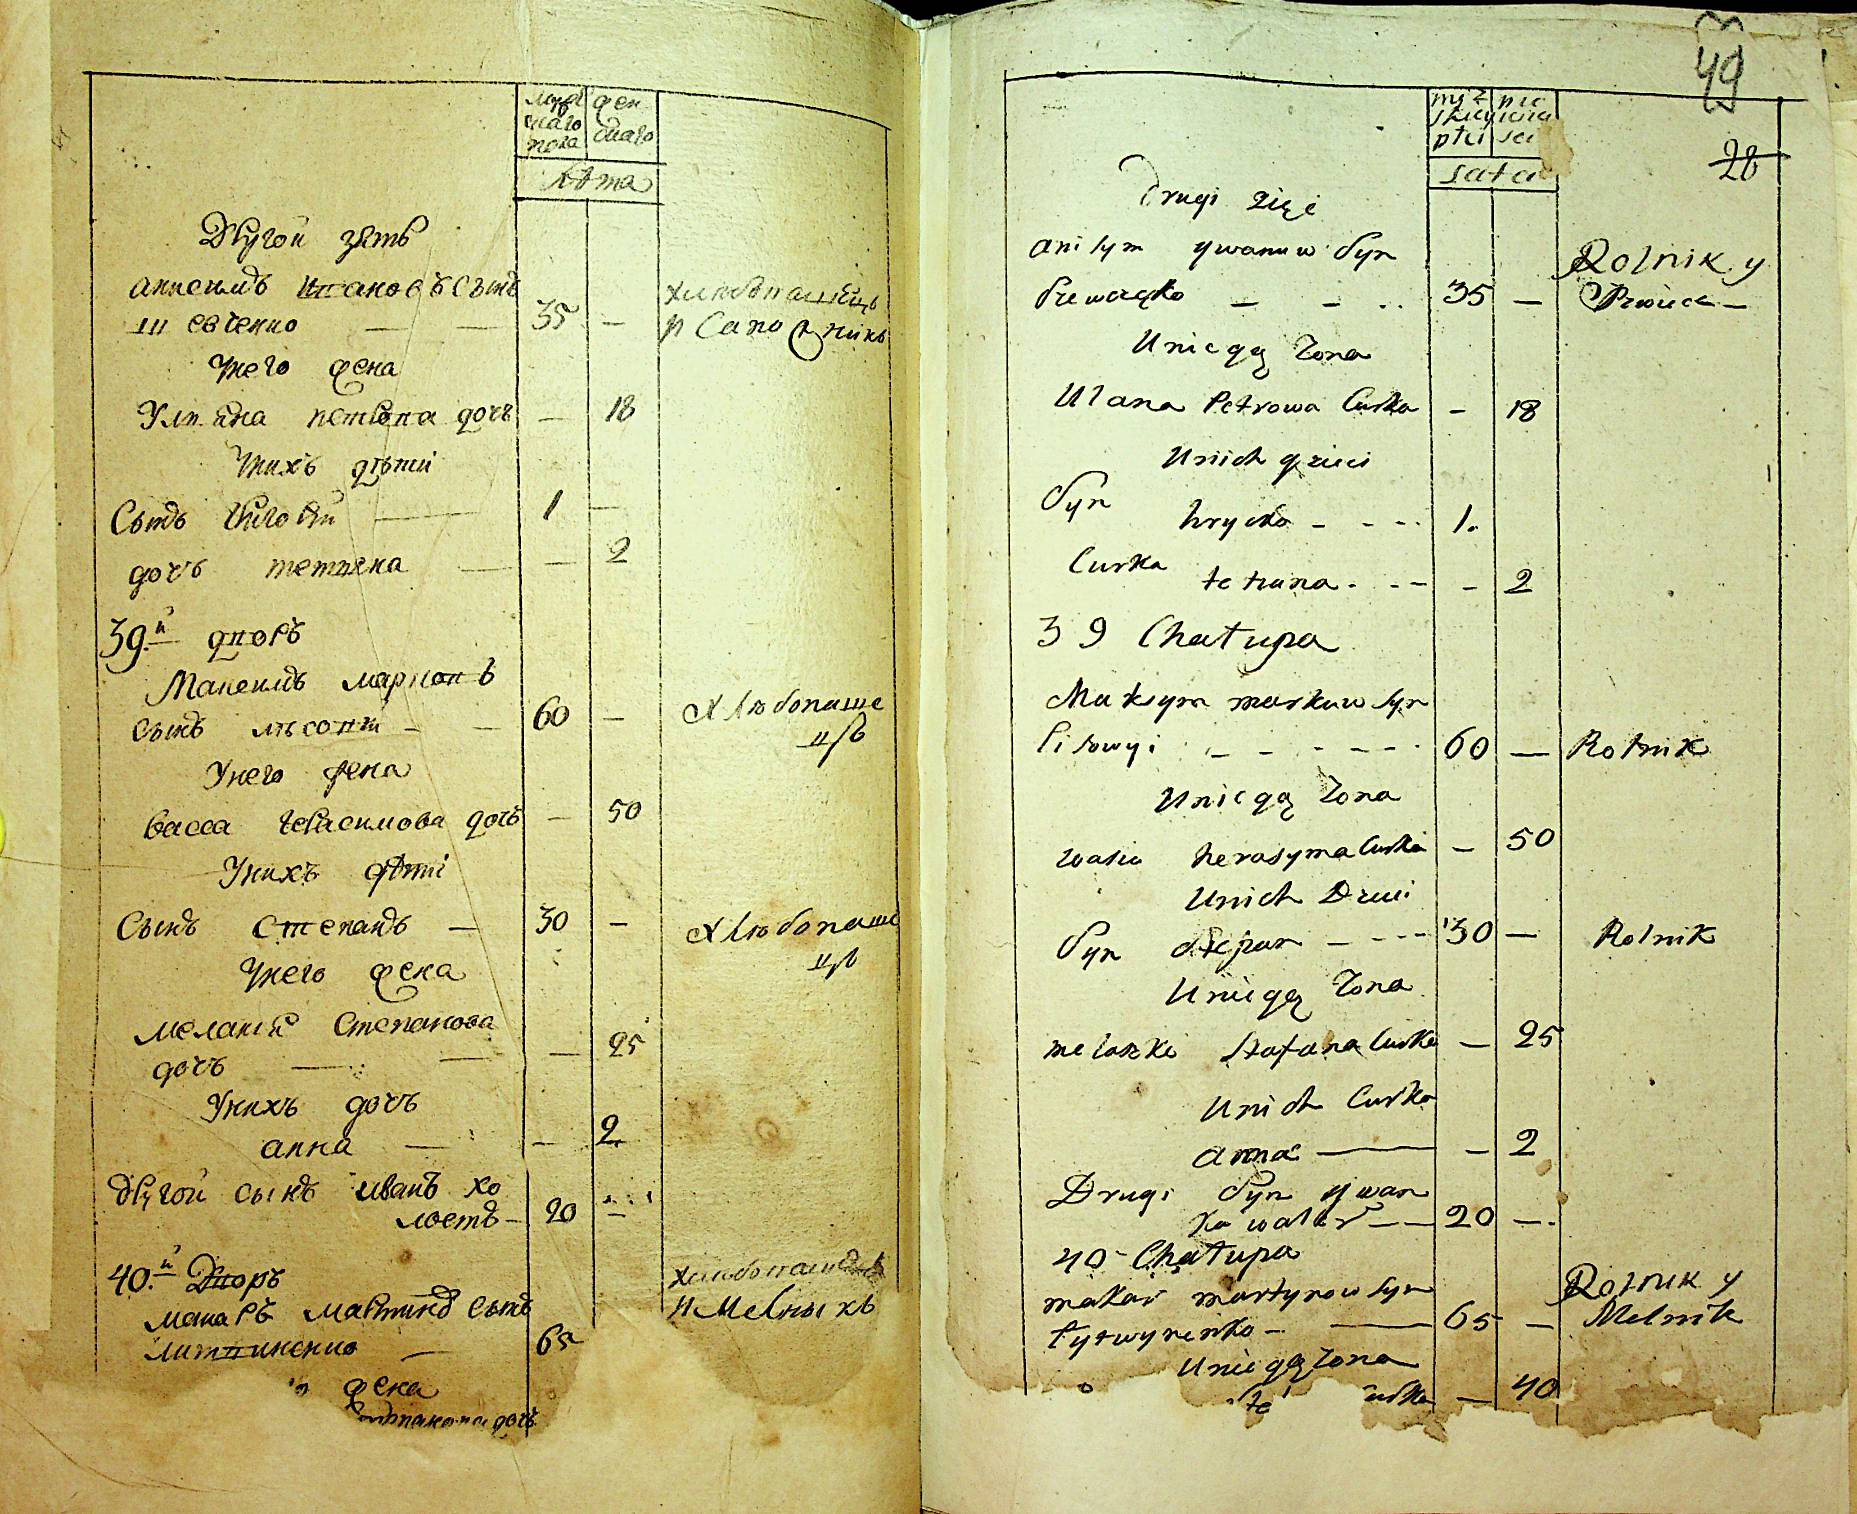 мужескаго пола
женскаго
лѣта
Другой зять
Анисимъ Ивановъ сынъ
Шевченко — — 35 —
хлѣбопашецъ
и Сапожникъ
У него жена
Ульяна Петрова дочь — 18
У нихъ дѣти
Сынъ Григорій — 1 —
дочь Татьяна — — 2
39.й дворъ
Максимъ Марковъ
сынъ Лѣсовий — — 60 —
Хлѣбопаше
цъ
У него жена
Васса Герасимова дочь — 50
У нихъ дѣти
Сынъ Степанъ — 30 —
Хлѣбопаше
цъ
У него жена
Меланія Степанова
дочь — — — 25
У нихъ дочь
Анна — — 2
Другой сынъ Иванъ хо
лостъ — 20 —
40.й Дворъ
хлѣбопашецъ
Макаръ Мартиновъ сынъ
и Мельникъ
Литвиненко — 65
жена
дочь
49
28
męzskiey płci
lata
Drugi zięć
anisym ywanuw Syn
Rolnik y
Szewczęko — — — 35 — Szwiec —
Uniegą Zona
Ulana Petrowa Curka — 18
Unich dzieci
Syn hrycko — - - - 1.
Curka tetiana - - - — 2
39 Chałupa
Maksym markuw syn
lisowyi — — - - - 60 — Rolnik
Uniegą Zona
wasia herasyma Curka — 50
Unich Dzieci
Syn stepan — - - - 30 — Rolnik
Uniegą Zona
melaszka Stafana Curka — 25
Unich Curka
anna — — 2
Drugi Syn ywan
Kawaler — — 20 —.
40 Chałupa
makar martynow syn
Rolnik y
łytwynenko — — 65 — Melnik
Uniegą Zona
Curka — 40